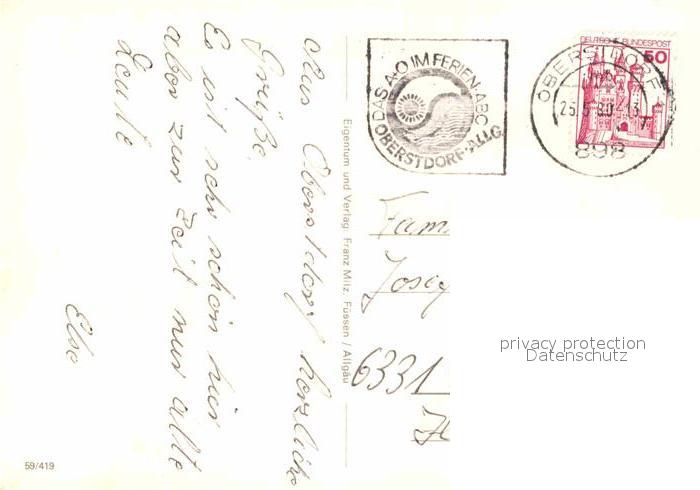 Aus Oberstdorf herzliche
Grüße.
Es ist sehr schön hier
aber zur Zeit nur alte
Leute
Else
59/419
Eigentum und Verlag: Franz Milz, Füssen / Allgäu
DAS A·O IM FERIEN-ABC
OBERSTDORF·ALLG.
DEUTSCHE BUNDESPOST
50
OBERSTDORF
25.5.80-13
898
Fam
Josef
6331
privacy protection
Datenschutz